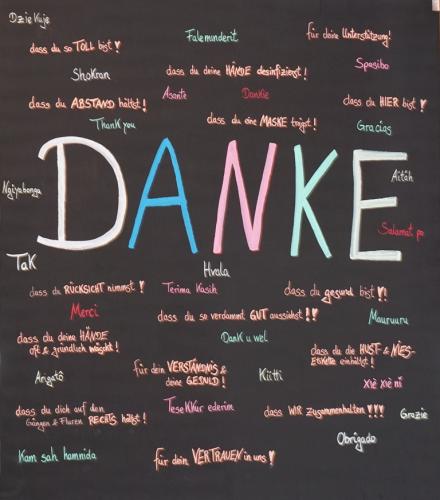 Dziekuje
Falemunderit
für deine Unterstützung!
dass du so TOLL bist!
Shokran
dass du deine HÄNDE desinfizierst!
Spasibo
Asante
Dankie
dass du ABSTAND hältst!
dass du HIER bist!
Thank you
dass du eine MASKE trägst!
Gracias
DANKE
Ngiyabonga
Aitäh
Salamat po
Tak
Hvala
dass du RÜCKSICHT nimmst!
Terima Kasih
dass du gesund bist!!
Merci
dass du so verdammt GUT aussiehst!!
Mauruuru
dass du deine HÄNDE
oft & gründlich wäscht!
Dank u wel
dass du die HUST- & NIES-
ETIKETTE einhältst!
für dein VERSTÄNDNIS &
deine GEDULD!
Arigatô
Kiitti
Xiè xiè nǐ
dass du dich auf den
Gängen & Fluren RECHTS hältst!
TeseKKur ederim
dass WIR zusammenhalten!!!
Grazie
Obrigado
Kam sah hamnida
für dein VERTRAUEN in uns!